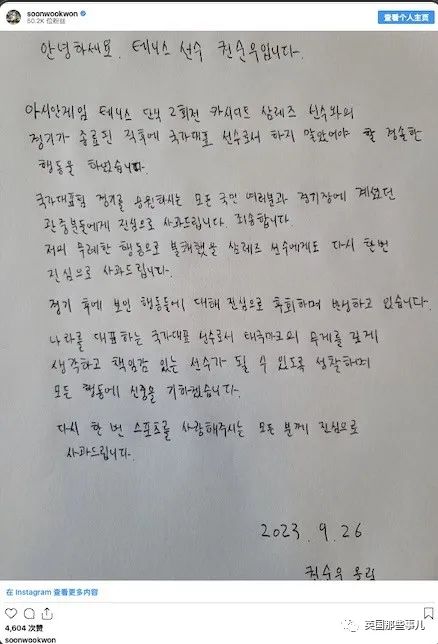 soonwookwon
50.2K 位粉丝
查看个人主页
안녕하세요. 테니스 선수 권순우입니다.
아시안게임 테니스 단식 2회전 카시디트 삼레즈 선수와의
경기가 종료된 직후에 국가대표 선수로서 하지 말았어야 할 경솔한
행동을 하였습니다.
국가대표팀 경기를 응원하시는 모든 국민 여러분과 경기장에 계셨던
관중분들에게 진심으로 사과드립니다. 죄송합니다.
저의 무례한 행동으로 불쾌했을 삼레즈 선수에게도 다시 한번
진심으로 사과드립니다.
경기 후에 보인 행동들에 대해 진심으로 후회하며 반성하고 있습니다.
나라를 대표하는 국가대표 선수로서 태극마크의 무게를 깊게
생각하고 책임감 있는 선수가 될 수 있도록 성찰하며
모든 행동에 신중을 기하겠습니다.
다시 한 번 스포츠를 사랑해주시는 모든 분께 진심으로
사과드립니다.
2023. 9. 26
권순우 올림
在 Instagram 查看更多内容
4,604 次赞
英国那些事儿
soonwookwon